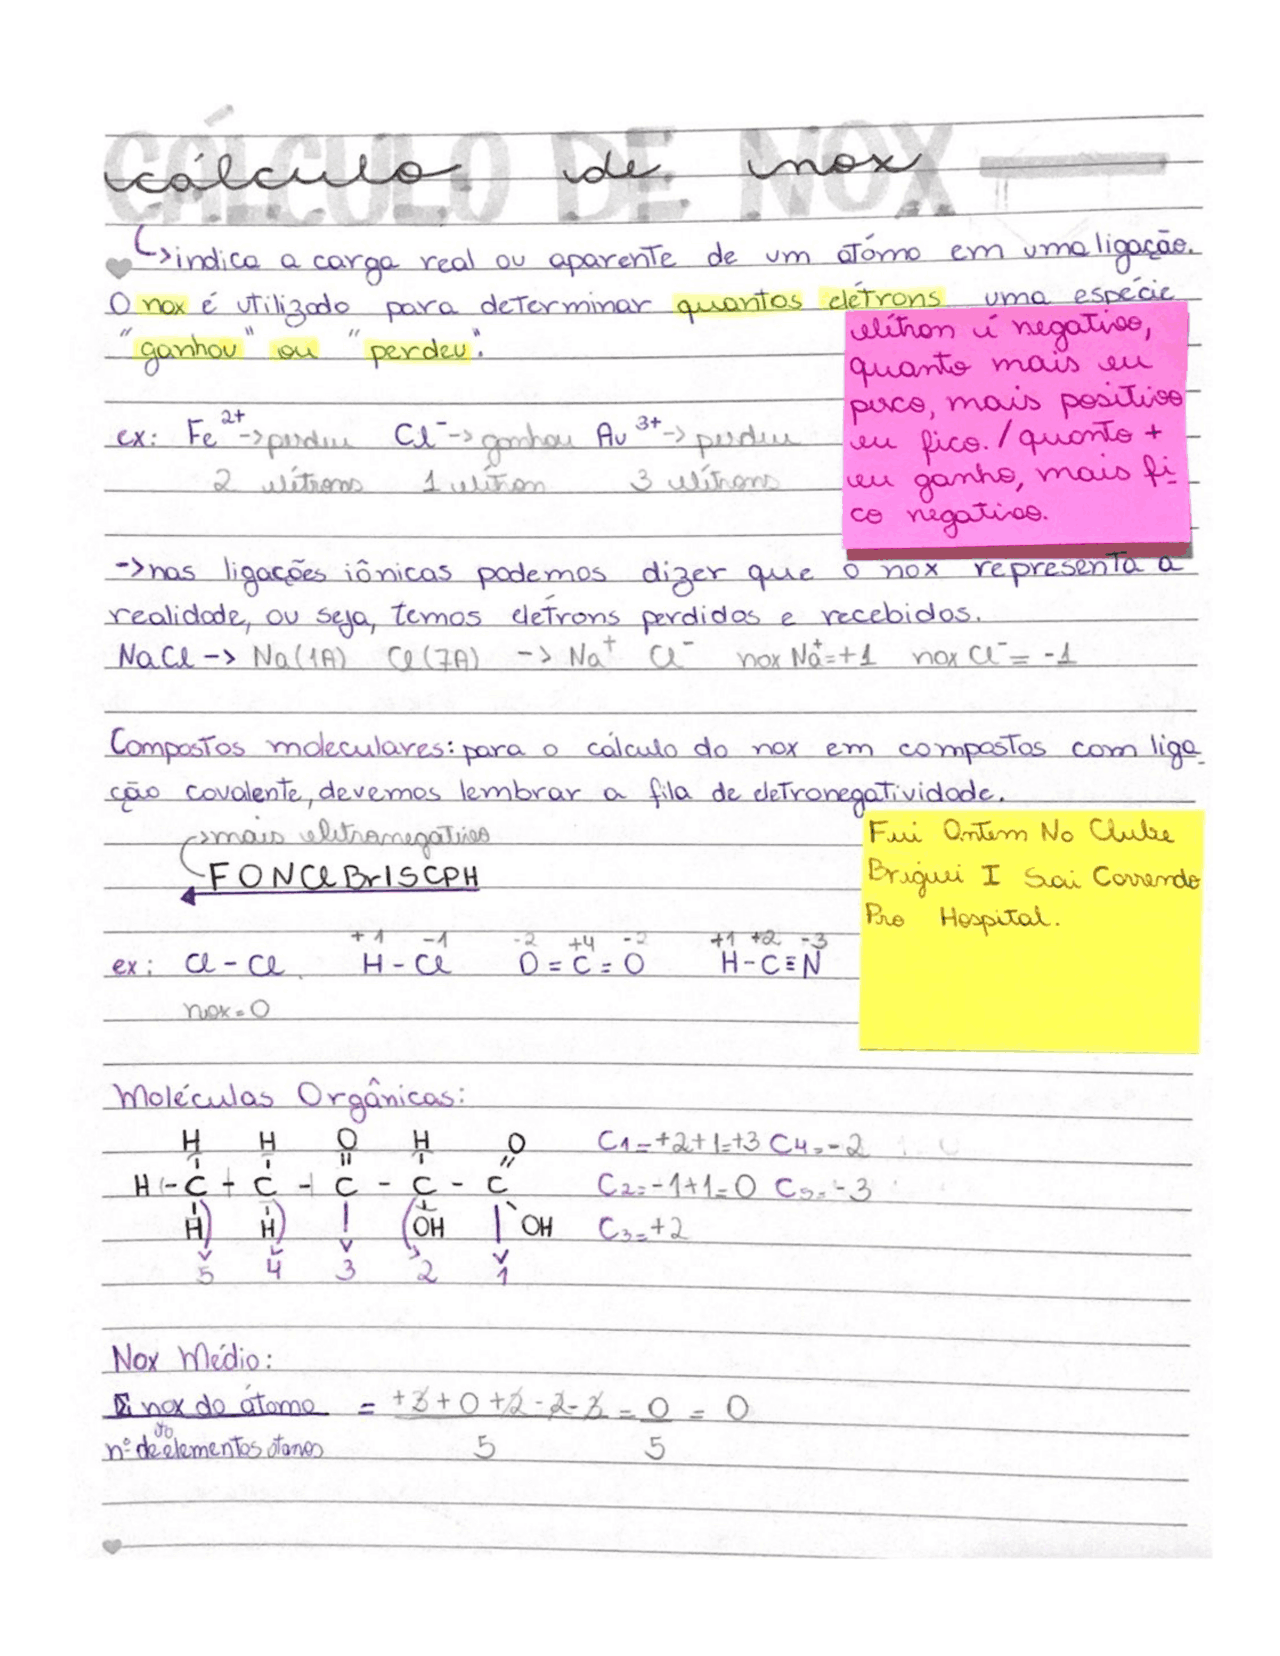 CÁLCULO DE NOX
cálculo de nox
↳indica a carga real ou aparente de um atómo em uma ligação.
O nox é utilizado para determinar quantos elétrons uma espécie
"ganhou" ou "perdeu".
elétron é negativo,
quanto mais eu
perco, mais positivo
eu fico. / quanto +
eu ganho, mais fi-
co negativo.
ex: Fe²⁺->perdeu Cl⁻->ganhou Au³⁺->perdeu
2 elétrons 1 elétron 3 elétrons
->nas ligações iônicas podemos dizer que o nox representa a
realidade, ou seja, temos elétrons perdidos e recebidos.
NaCl -> Na(1A) Cl(7A) -> Na⁺ Cl⁻ nox Na⁺=+1 nox Cl⁻= -1
Compostos moleculares: para o cálculo do nox em compostos com liga-
ção covalente, devemos lembrar a fila de eletronegatividade.
->mais eletronegativo
F O N Cl Br I S C P H
Fui Ontem No Clube
Briguei I Sai Correndo
Pro Hospital.
+1 -1 -2 +4 -2 +1 +2 -3
ex: Cl - Cl H - Cl O = C = O H - C ≡ N
nox=0
Moléculas Orgânicas:
H H O H O C1=+2+1=+3 C4=-2
H - C + C - C - C - C C2=-1+1=0 C5=-3
H H OH OH C3=+2
5 4 3 2 1
Nox Médio:
Σ nox do átomo = +3+0+2-2-3 = 0 = 0
nº de elementos 5 5